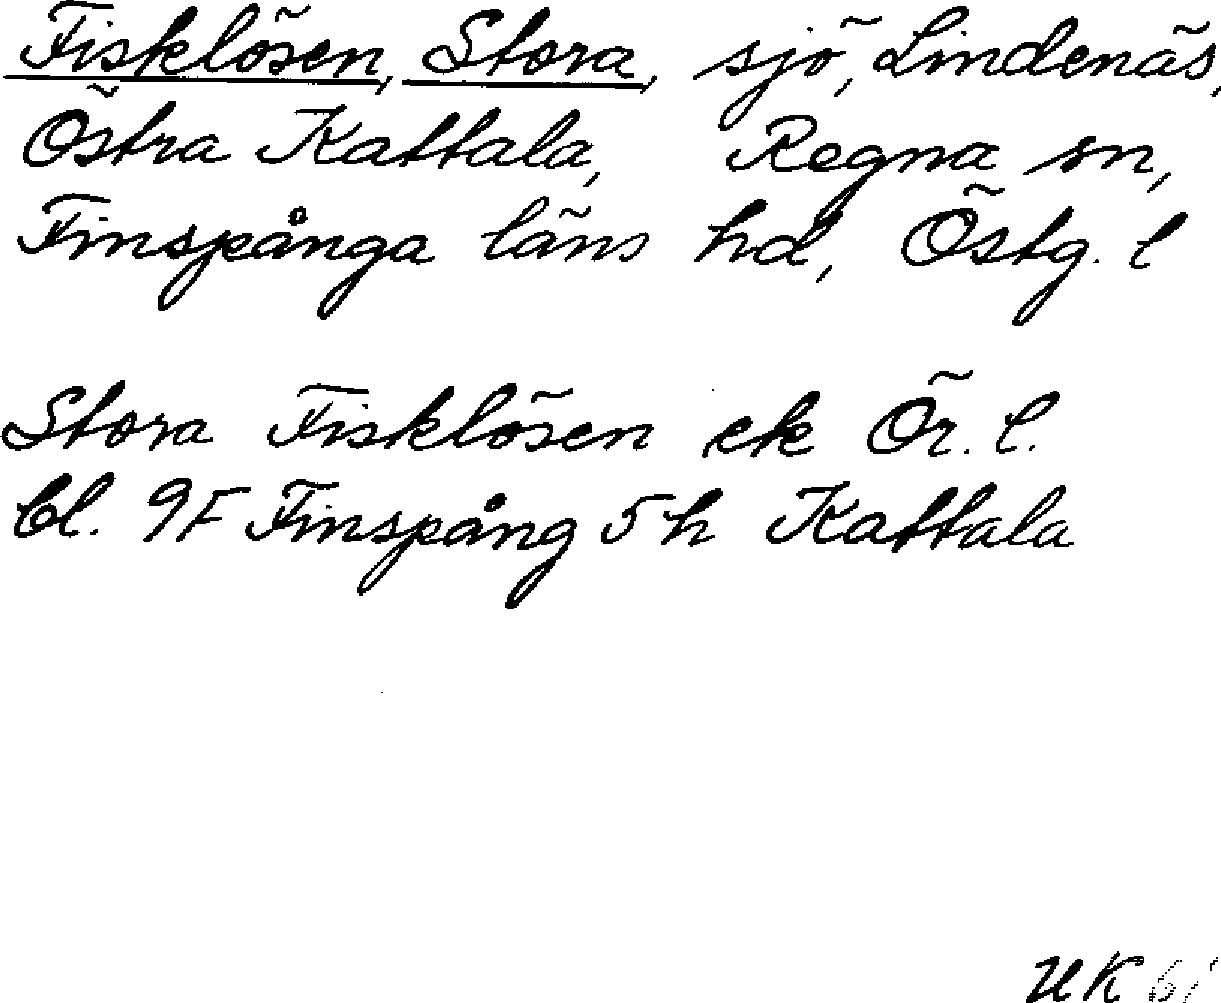 Fisklösen, Stora, sjö, Lindenäs,
Östra Kattala, Regna sn,
Finspånga läns hd, Östg. l
Stora Fisklösen ek Ör. l.
bl. 9F Finspång 5h Kattala
UK 61